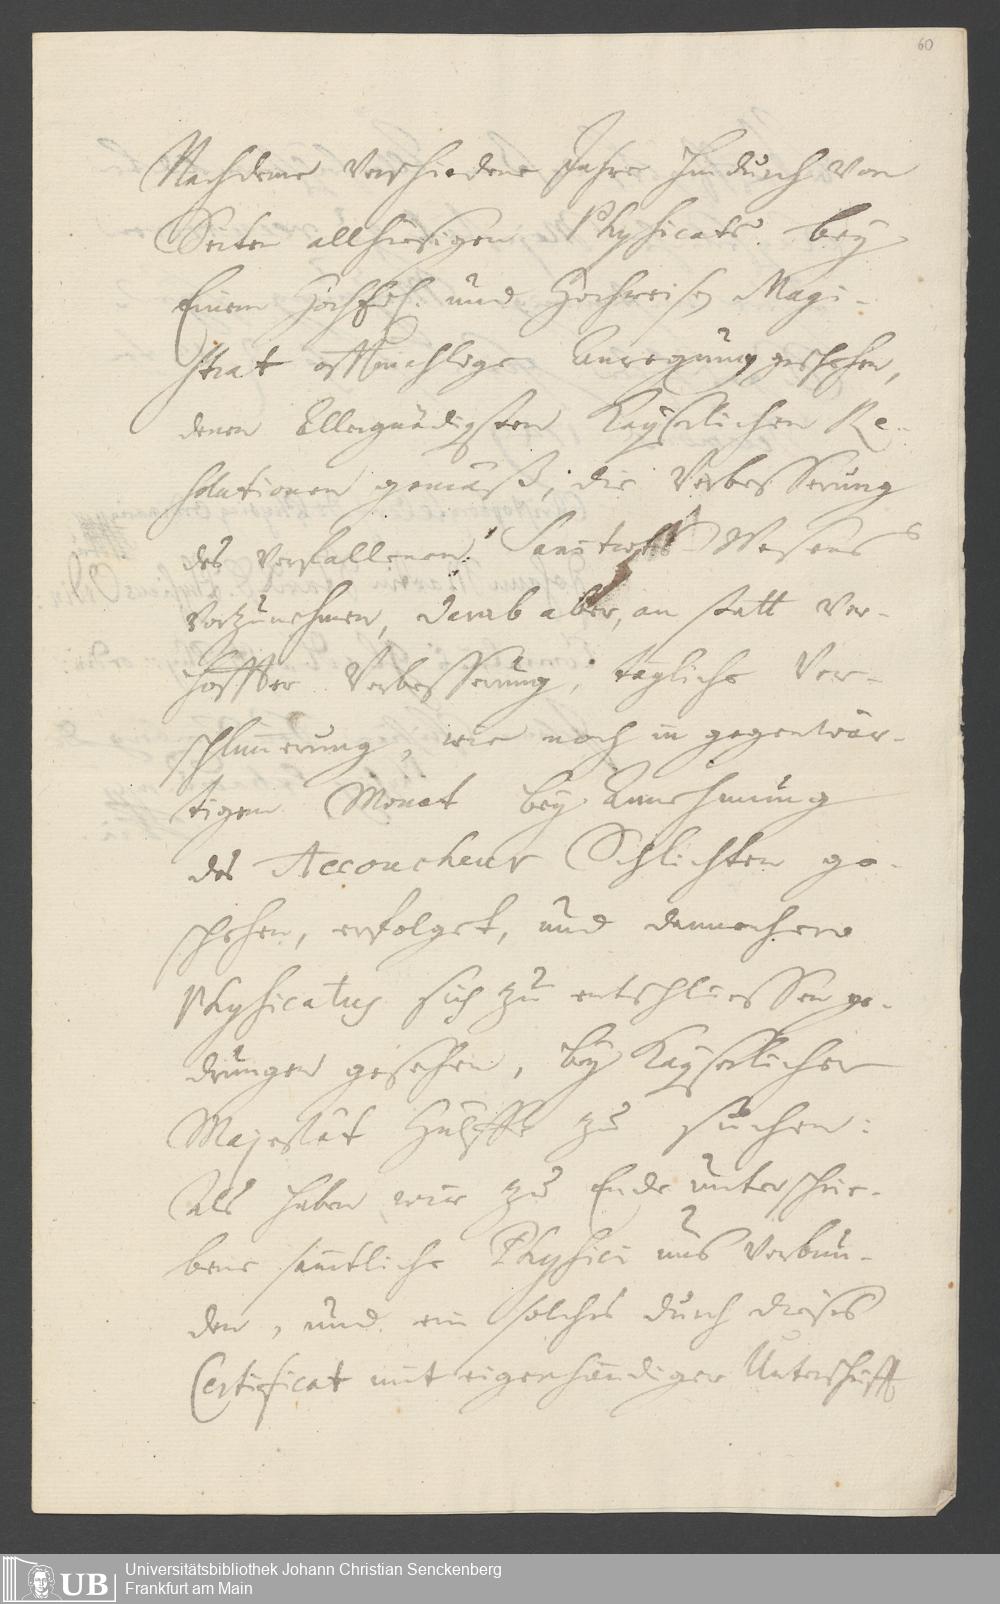 60
Nachdeme verschiedene Jahre hindurch von
Seiten allhiesigen Physicats bey
Einem Hochedl. und Hochweisen Magi-
strat offtmahlige Anregung geschehen,
denen Allergnädigsten Kayserlichen Re-
solutionen gemäß, die Verbesserung
des verfallenen Sanitæts-Wesens
vorzunehmen, darab aber, an statt ver-
hoffter Verbesserung, tägliche Ver-
schlim̅erung, wie noch in gegenwär-
tigem Monat bey Annehmung
des Accoucheur Schlichten ge-
schehen, erfolget, und dannenhero
Physicatus sich zu entschliessen ge-
drungen gesehen, bey Kayserlicher
Majestät Hülffe zu suchen:
Als haben wir zu Ende unterschrie-
bene sämtliche Physici uns verbun-
den, und ein solches durch dieses
Certificat mit eigenhändiger Unterschrifft
Universitätsbibliothek Johann Christian Senckenberg
Frankfurt am Main
UB